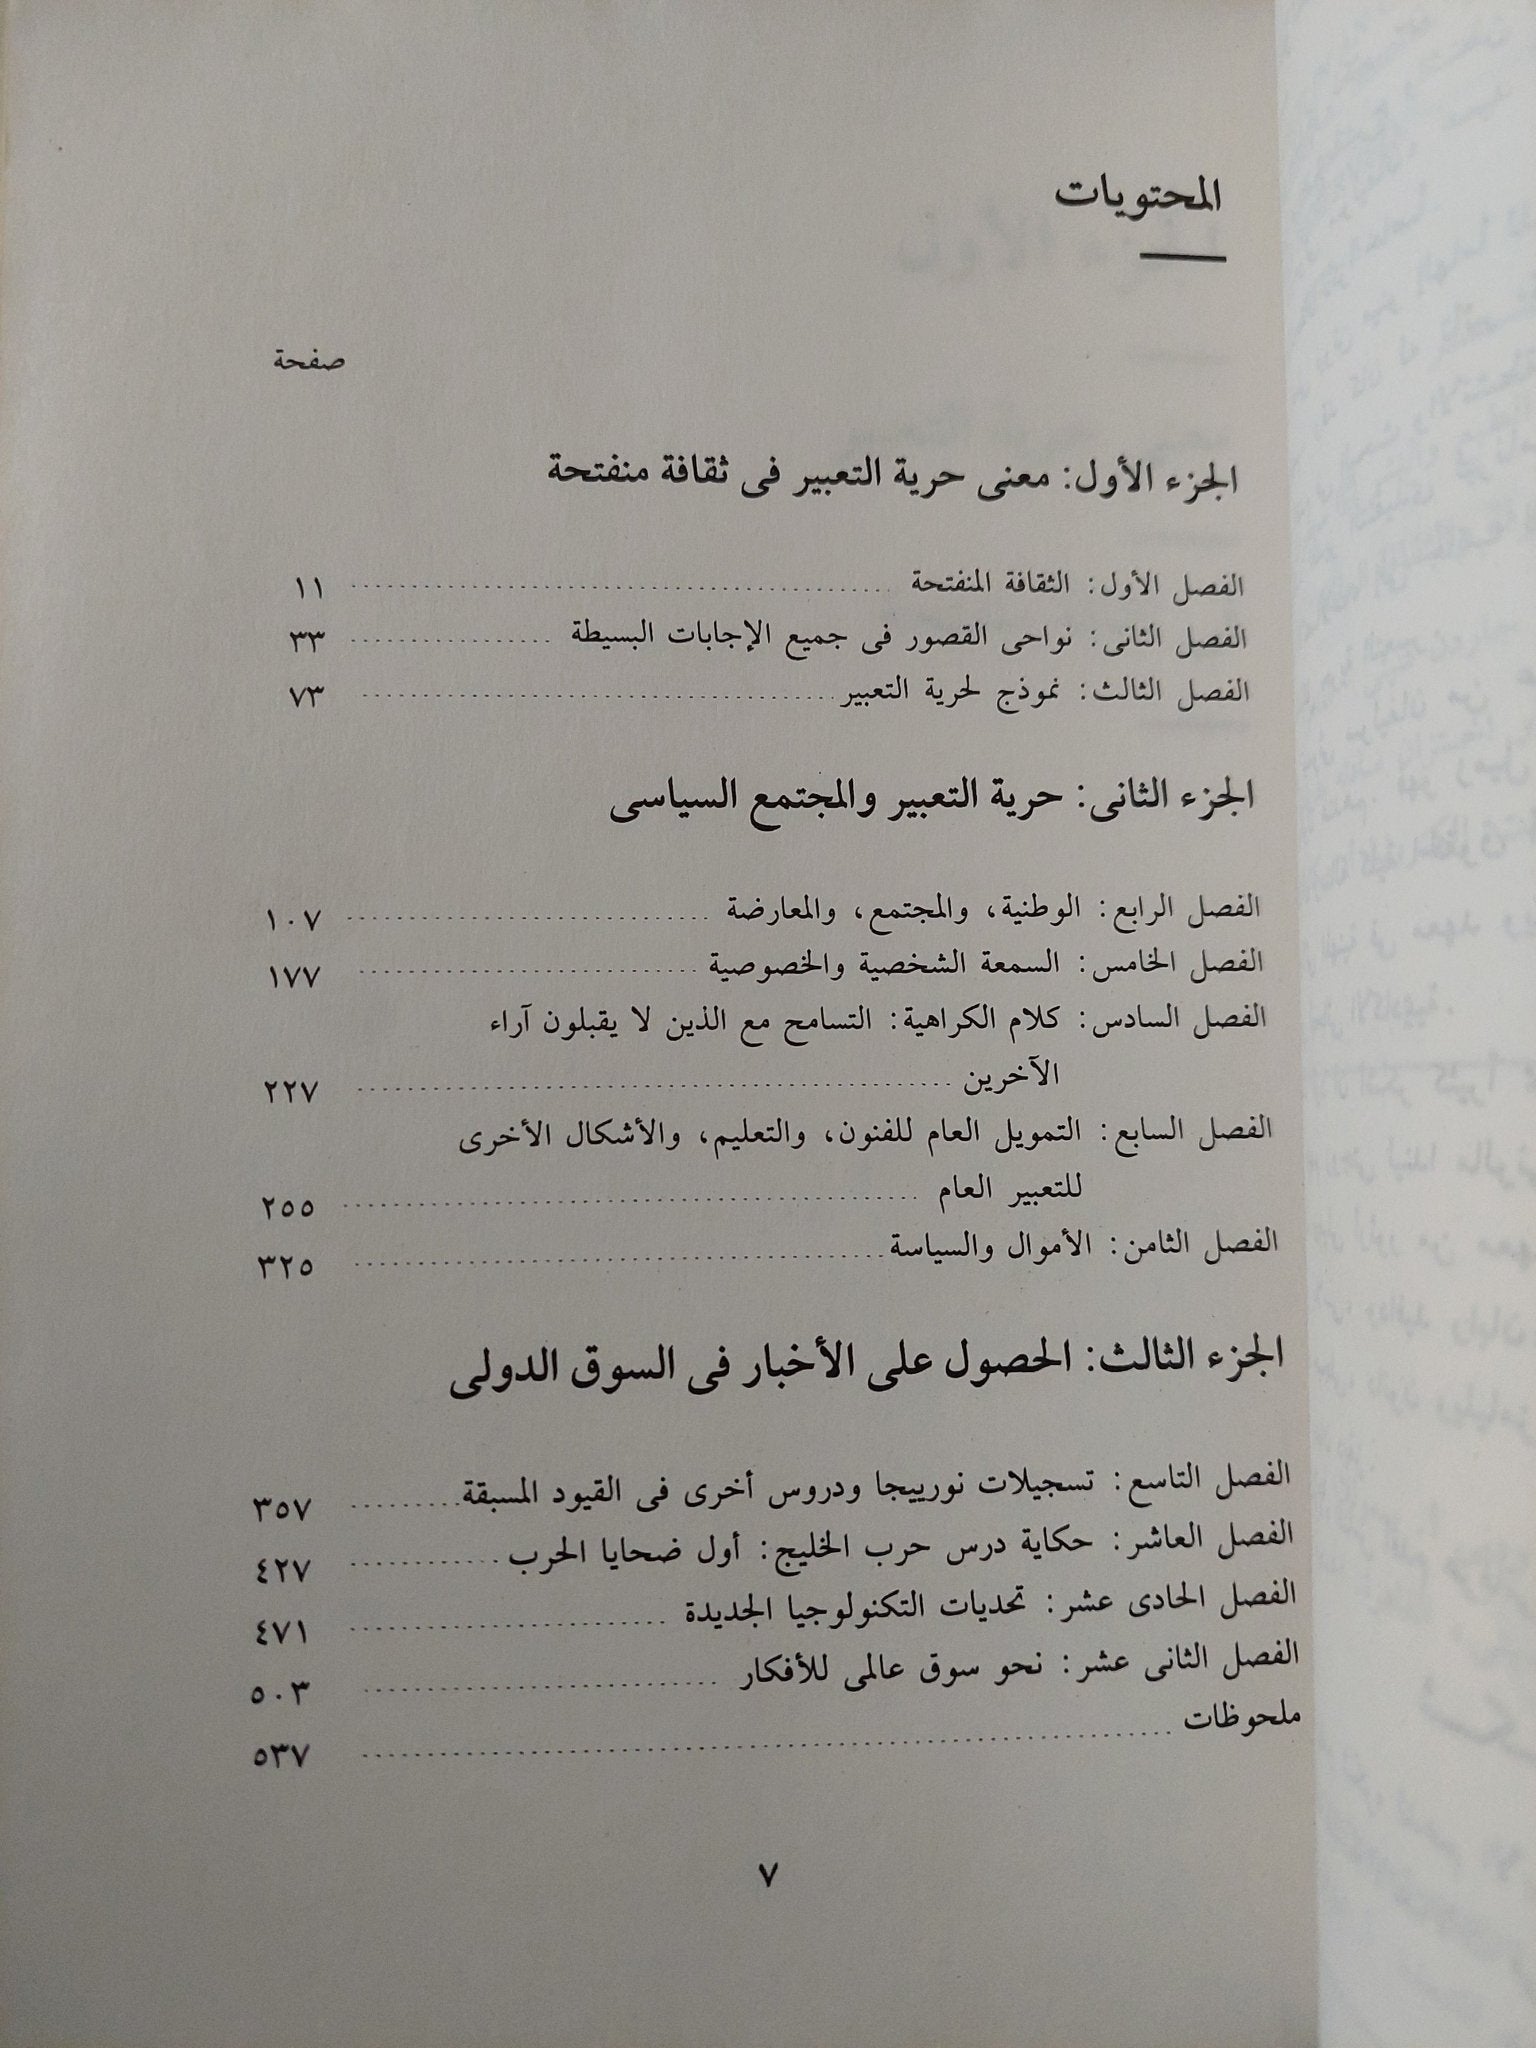 المحتويات
صفحة
الجزء الأول: معنى حرية التعبير فى ثقافة منفتحة
الفصل الأول: الثقافة المنفتحة ........................................ ١١
الفصل الثانى: نواحى القصور فى جميع الإجابات البسيطة .................. ٣٣
الفصل الثالث: نموذج لحرية التعبير ................................... ٧٣
الجزء الثانى: حرية التعبير والمجتمع السياسى
الفصل الرابع: الوطنية، والمجتمع، والمعارضة ........................... ١٠٧
الفصل الخامس: السمعة الشخصية والخصوصية ........................... ١٧٧
الفصل السادس: كلام الكراهية: التسامح مع الذين لا يقبلون آراء
الآخرين ........................................ ٢٢٧
الفصل السابع: التمويل العام للفنون، والتعليم، والأشكال الأخرى
للتعبير العام ........................................ ٢٥٥
الفصل الثامن: الأموال والسياسة ........................................ ٣٢٥
الجزء الثالث: الحصول على الأخبار فى السوق الدولى
الفصل التاسع: تسجيلات نورييجا ودروس أخرى فى القيود المسبقة .......... ٣٥٧
الفصل العاشر: حكاية درس حرب الخليج: أول ضحايا الحرب ............. ٤٢٧
الفصل الحادى عشر: تحديات التكنولوجيا الجديدة ........................ ٤٧١
الفصل الثانى عشر: نحو سوق عالمى للأفكار ........................... ٥٠٣
ملحوظات ........................................ ٥٣٧
٧